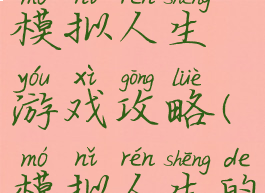 mó nǐ rén shēng
模拟人生
yóu xì gōng lüè
游戏攻略(
mó nǐ rén shēng de
模拟人生的